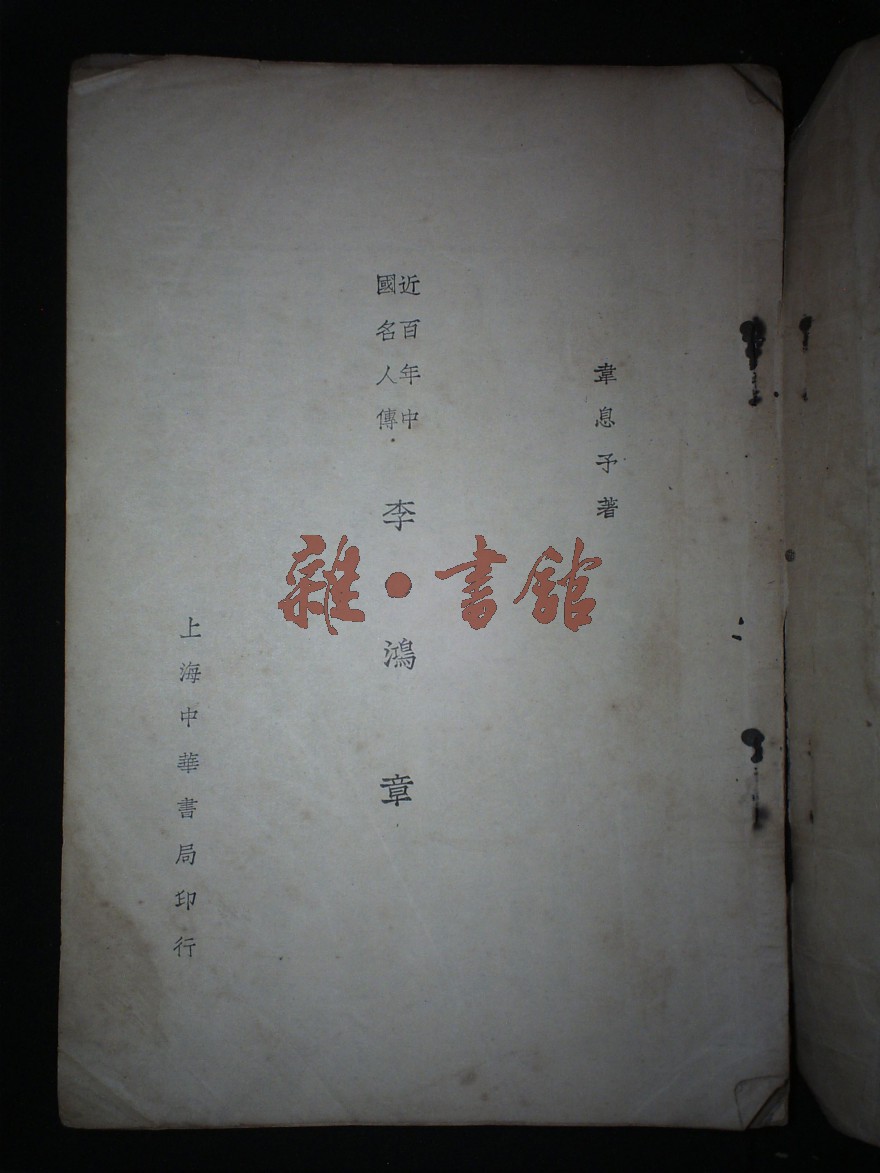 韋息予著
近百年中
國名人傳
李鴻章
上海中華書局印行
雜·書館